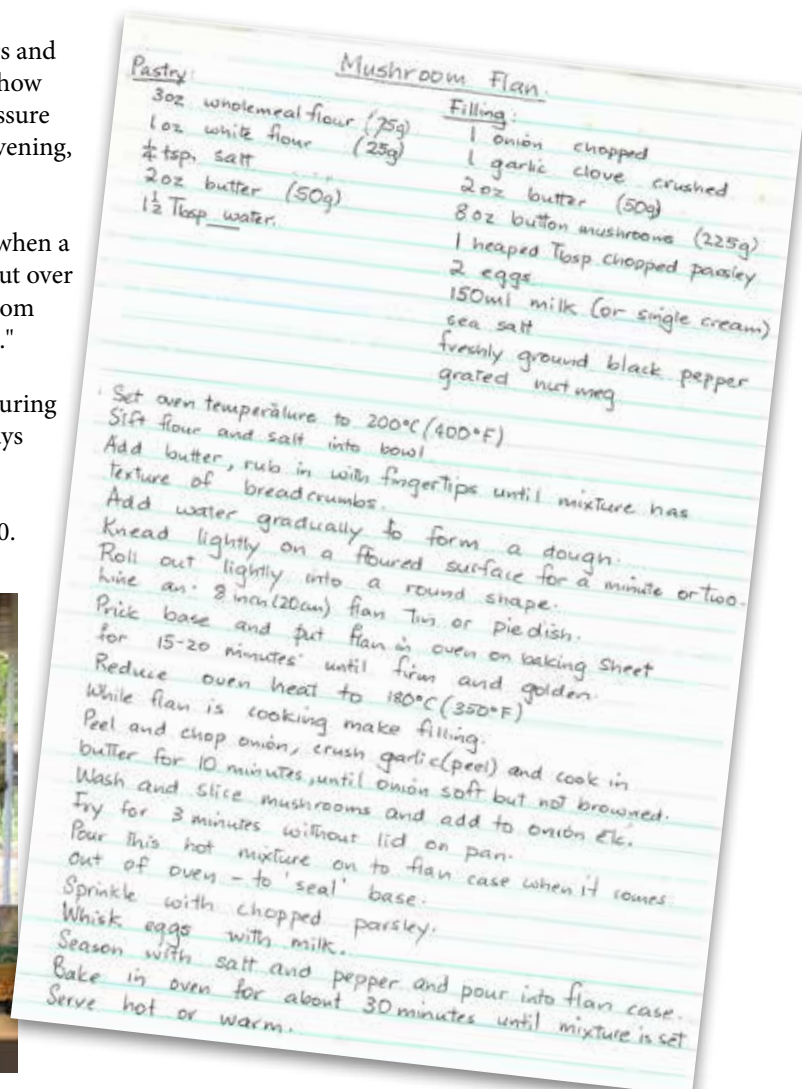 s and
how
ssure
vening,
when a
ut over
om
."
uring
ys
0.
Mushroom Flan.
Pastry:
3oz wholemeal flour (75g)
1oz white flour (25g)
¼ tsp. salt
2oz butter (50g)
1½ Tbsp water.
Filling:
1 onion chopped
1 garlic clove crushed
2oz butter (50g)
8oz button mushrooms (225g)
1 heaped Tbsp chopped parsley
2 eggs
150ml milk (or single cream)
sea salt
freshly ground black pepper
grated nutmeg
Set oven temperature to 200°C (400°F)
Sift flour and salt into bowl
Add butter, rub in with fingertips until mixture has
texture of breadcrumbs.
Add water gradually to form a dough.
Knead lightly on a floured surface for a minute or two.
Roll out lightly into a round shape.
Line an 8 inch (20cm) flan Tin or piedish.
Prick base and put flan in oven on baking sheet
for 15-20 minutes until firm and golden.
Reduce oven heat to 180°C (350°F)
While flan is cooking make filling.
Peel and chop onion, crush garlic (peel) and cook in
butter for 10 minutes, until onion soft but not browned.
Wash and slice mushrooms and add to onion etc.
Fry for 3 minutes without lid on pan.
Pour this hot mixture on to flan case when it comes
out of oven - to 'seal' base.
Sprinkle with chopped parsley.
Whisk eggs with milk.
Season with salt and pepper and pour into flan case.
Bake in oven for about 30 minutes until mixture is set
Serve hot or warm.